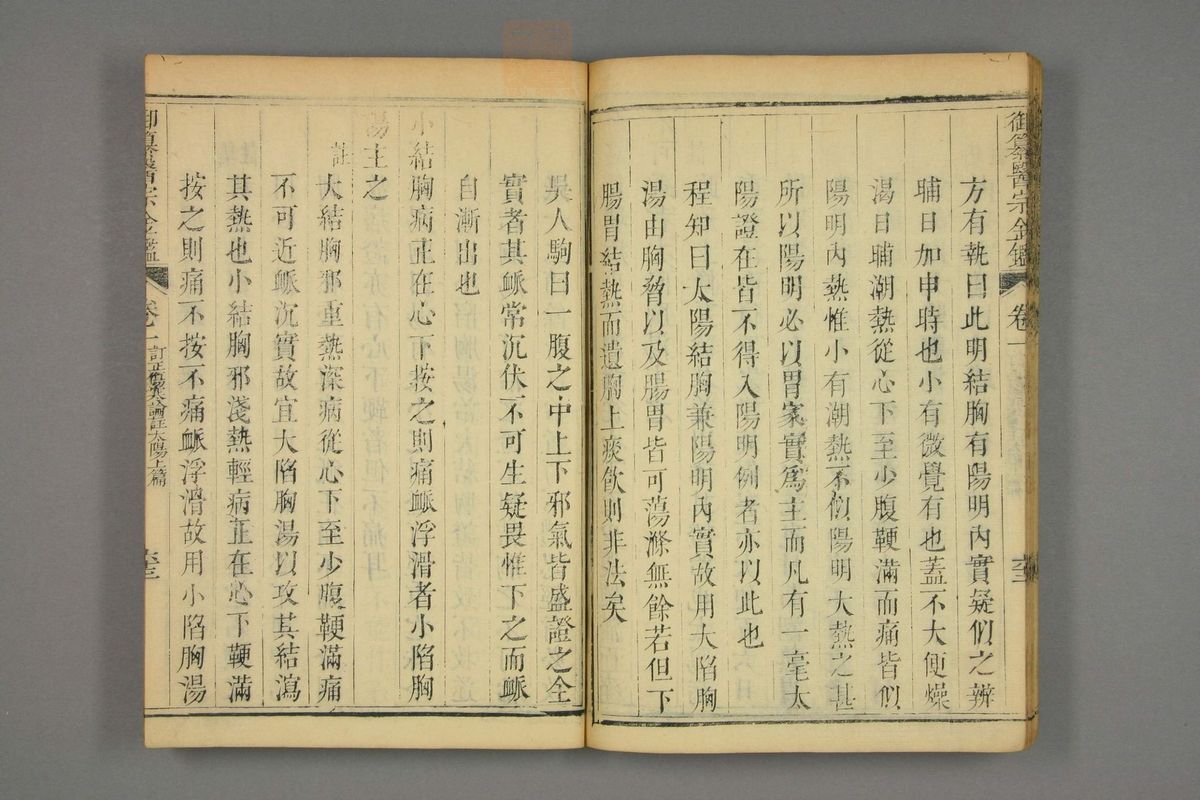 御纂醫宗金鑑 卷一
方有執曰此明結胸有陽明內實疑似之辨
晡日加申時也小有微覺有也蓋不大便燥
渴日晡潮熱從心下至少腹鞕滿而痛皆似
陽明內熱惟小有潮熱不似陽明大熱之甚
所以陽明必以胃家實爲主而凡有一毫太
陽證在皆不得入陽明例者亦以此也
程知曰太陽結胸兼陽明內實故用大陷胸
湯由胸脅以及腸胃皆可蕩滌無餘若但下
腸胃結熱而遺胸上痰飲則非法矣
吳人駒曰一腹之中上下邪氣皆盛證之全
實者其䘑常沉伏不可生疑畏惟下之而䘑
自漸出也
小結胸病正在心下按之則痛䘑浮滑者小陷胸
湯主之
註大結胸邪重熱深病從心下至少腹鞕滿痛
不可近䘑沉實故宜大陷胸湯以攻其結瀉
其熱也小結胸邪淺熱輕病正在心下鞕滿
按之則痛不按不痛䘑浮滑故用小陷胸湯
御纂醫宗金鑑 卷一 訂正傷寒論註太陽上篇